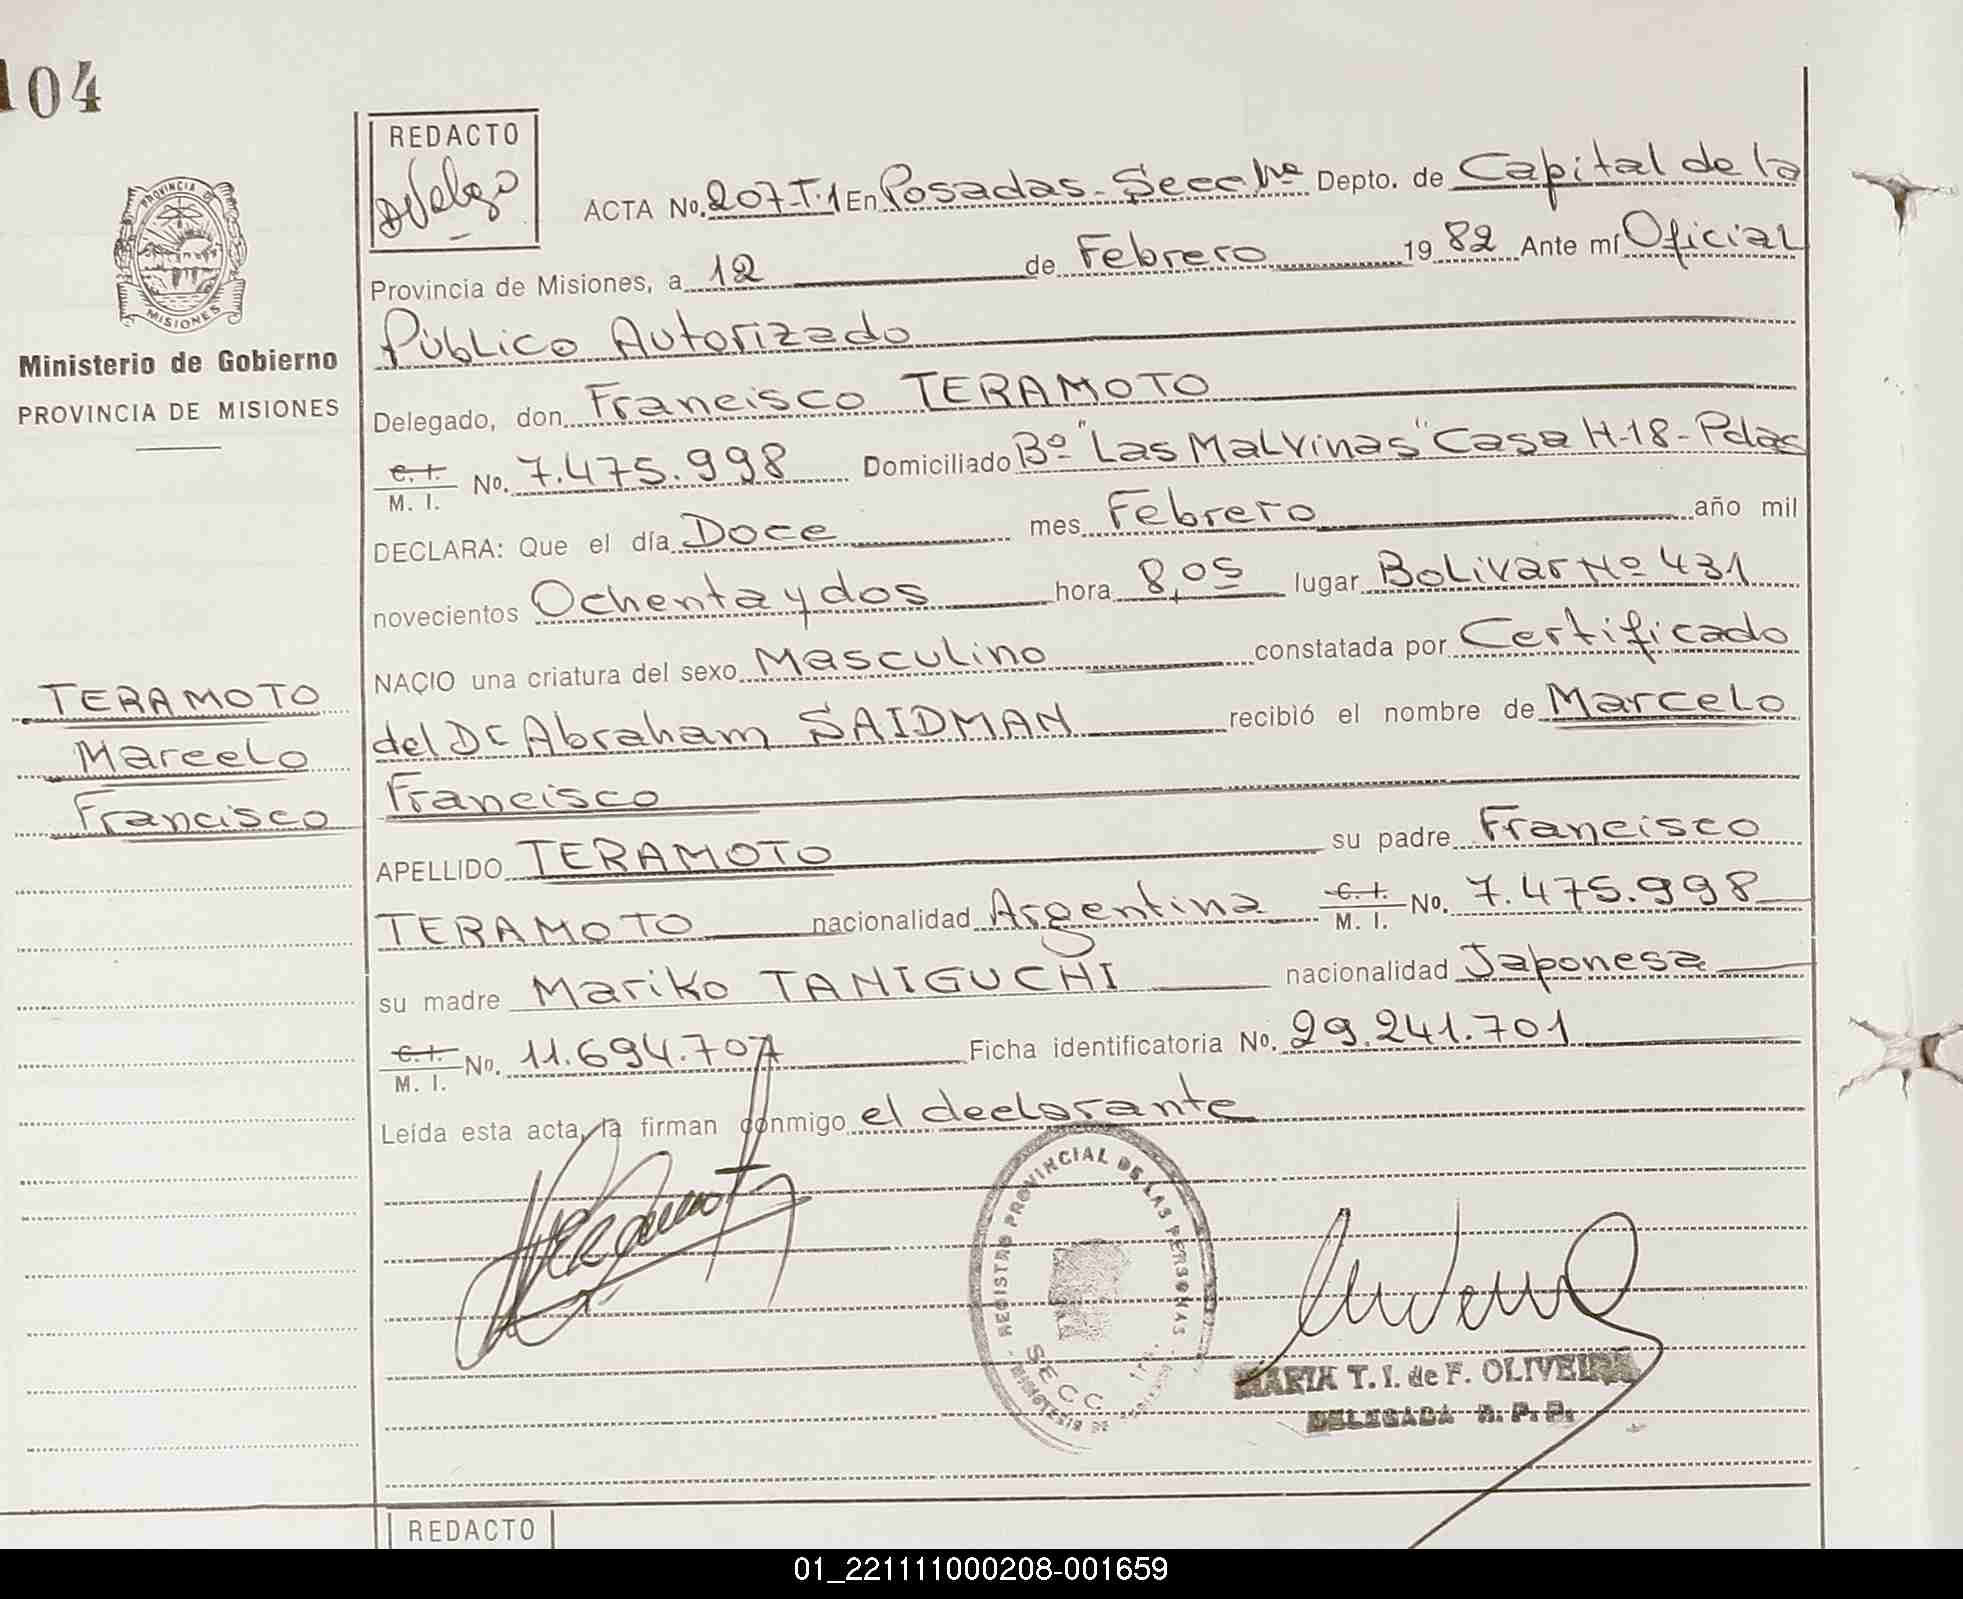 104
REDACTO
PROVINCIA DE
MISIONES
Ministerio de Gobierno
PROVINCIA DE MISIONES
TERAMOTO
Marcelo
Francisco
ACTA No. 207-T.1 En Posadas-Secc 1ra Depto. de Capital de la
Provincia de Misiones, a 12 de Febrero 19 82 Ante mí Oficial
Público Autorizado
Delegado, don Francisco TERAMOTO
C.I. M. I. No. 7.475.998 Domiciliado Bº "Las Malvinas" Casa H-18-Pdas
DECLARA: Que el día Doce mes Febrero año mil
novecientos Ochenta y dos hora 8,05 lugar Bolivar Nº 431
NACIO una criatura del sexo Masculino constatada por Certificado
del Dr Abraham SAIDMAN recibió el nombre de Marcelo
Francisco
APELLIDO TERAMOTO su padre Francisco
TERAMOTO nacionalidad Argentina C.I. M. I. No. 7.475.998
su madre Mariko TANIGUCHI nacionalidad Japonesa
C.I. M. I. No. 11.694.707 Ficha identificatoria No. 29.241.701
Leída esta acta, la firman conmigo el declarante
REGISTRO PROVINCIAL DE LAS PERSONAS
SECC. 1ra.
MARIA T. I. de F. OLIVEIRA
DELEGADA R. P. P.
REDACTO
01_221111000208-001659